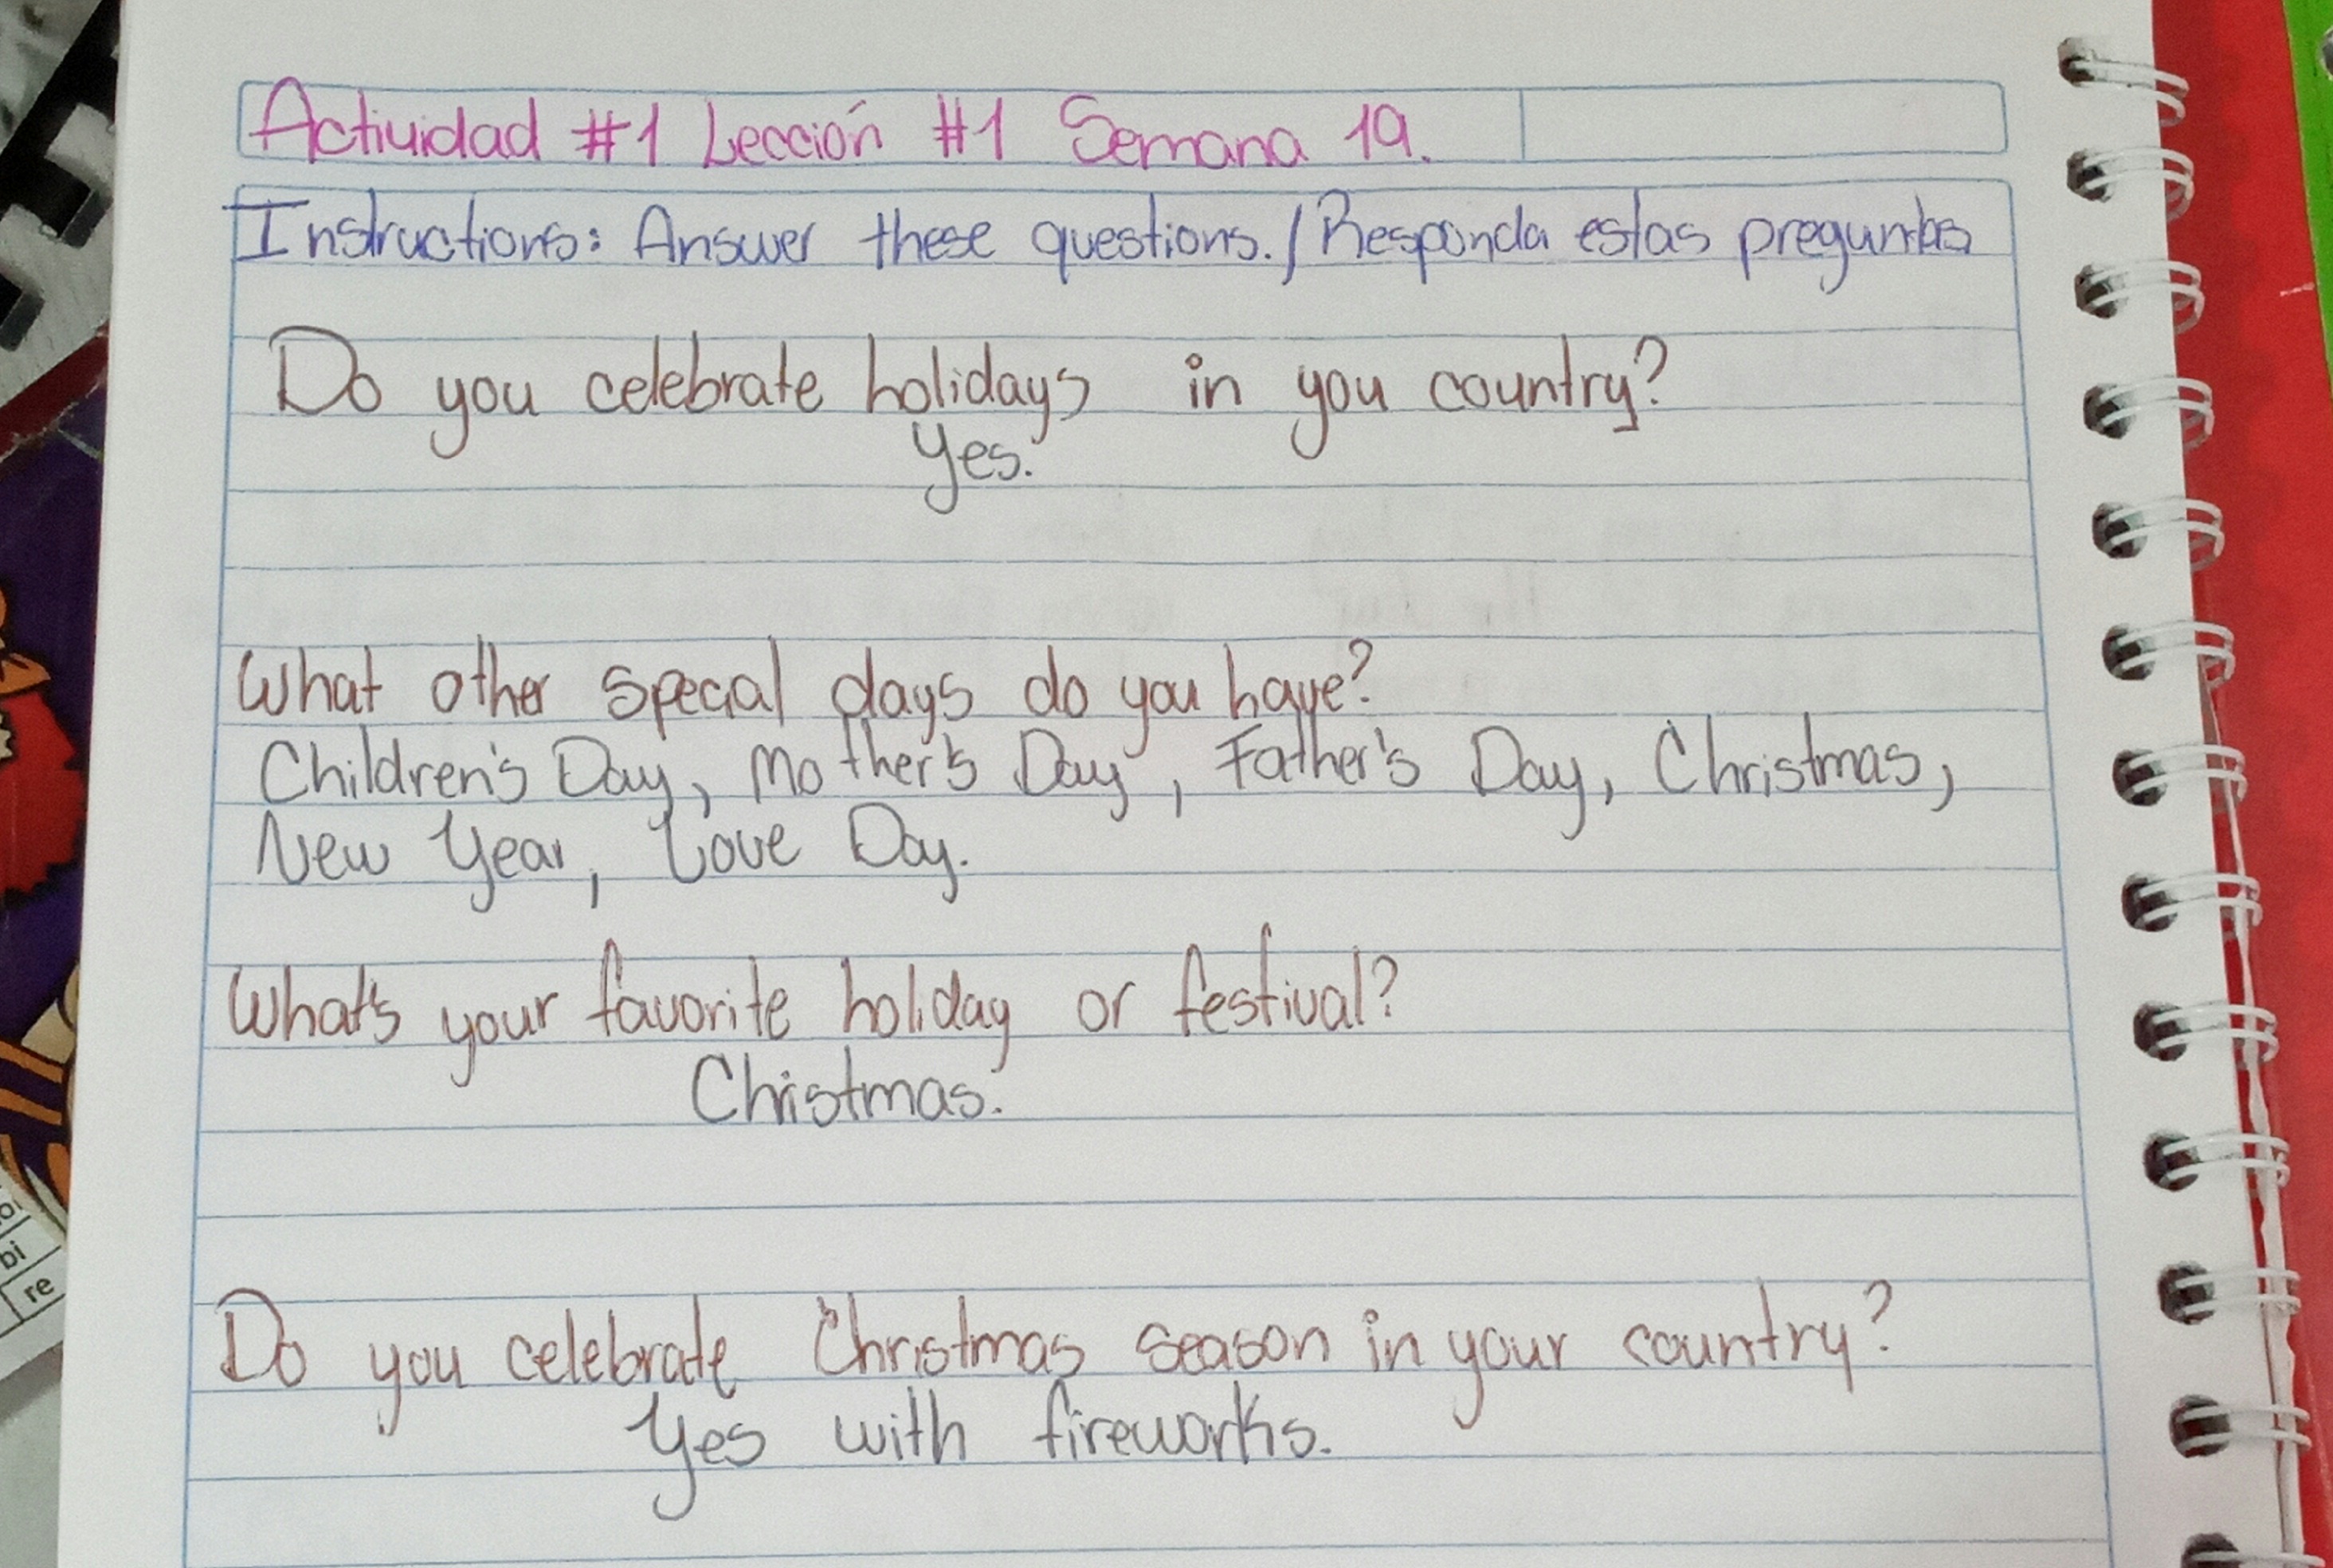 Actividad #1 Lección #1 Semana 19.
Instructions: Answer these questions. / Responda estas preguntas
Do you celebrate holidays in you country?
Yes.
What other special days do you have?
Children's Day, Mother's Day, Father's Day, Christmas,
New Year, Love Day.
What's your favorite holiday or festival?
Christmas.
Do you celebrate Christmas season in your country?
Yes with fireworks.
bi
re